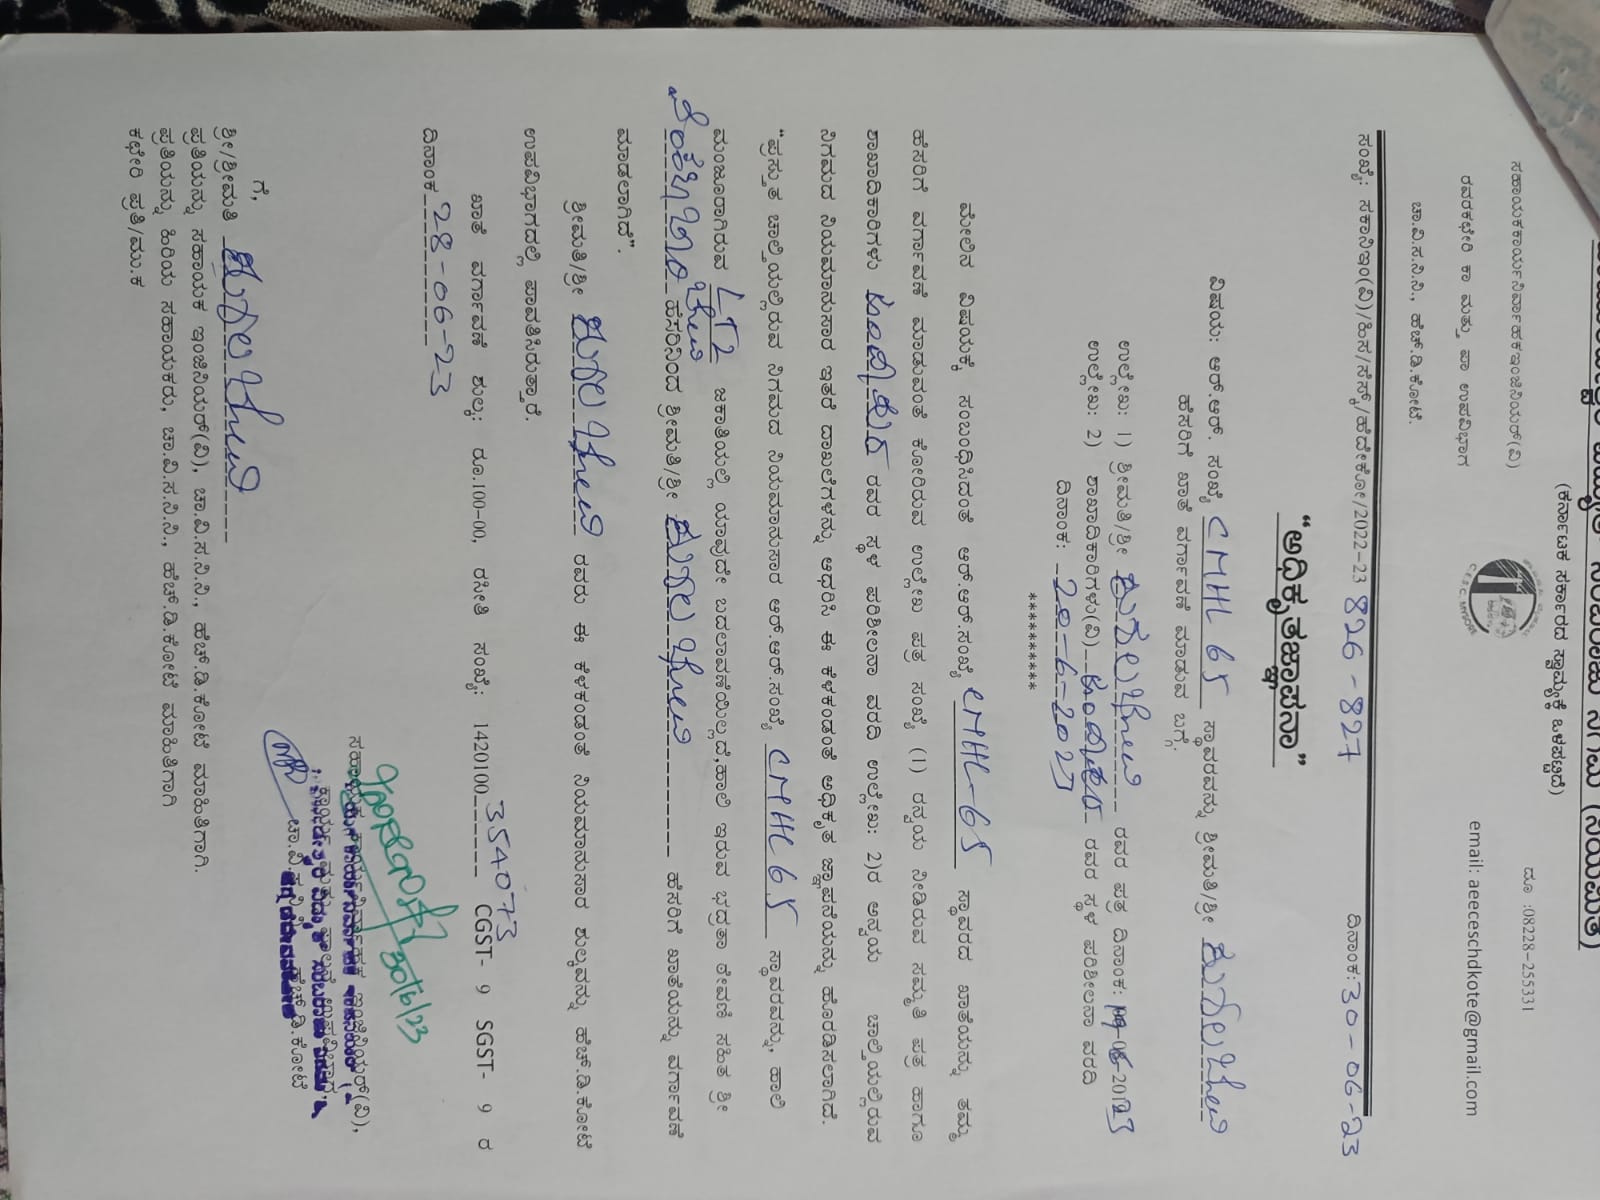 (ಕರ್ನಾಟಕ ಸರ್ಕಾರದ ಸ್ವಾಮ್ಯಕ್ಕೆ ಒಳಪಟ್ಟಿದೆ)
ಸಹಾಯಕಕಾರ್ಯನಿರ್ವಾಹಕಇಂಜಿನಿಯರ್(ವಿ)
ದೂ :08228-255331
ರವರಕಛೇರಿ ಕಾ ಮತ್ತು ಪಾ ಉಪವಿಭಾಗ
email: aeececschdkote@gmail.com
ಚಾ.ವಿ.ಸ.ನಿ.ನಿ., ಹೆಚ್.ಡಿ.ಕೋಟೆ.
C.E.S.C. MYSORE
ಸಂಖ್ಯೆ: ಸಕಾನಿಇಂ(ವಿ)/ಹಿಸ/ಸೆಸ್ಕ್/ಹೆದೇಕೋ/2022-23 826-827 ದಿನಾಂಕ:30-06-23
"ಅಧಿಕೃತಜ್ಞಾಪನಾ"
ವಿಷಯ: ಆರ್.ಆರ್. ಸಂಖ್ಯೆ CMHL 65 ಸ್ಥಾವರವನ್ನು ಶ್ರೀಮತಿ/ಶ್ರೀ
ಹೆಸರಿಗೆ ಖಾತೆ ವರ್ಗಾವಣೆ ಮಾಡುವ ಬಗ್ಗೆ.
ಉಲ್ಲೇಖ: 1) ಶ್ರೀಮತಿ/ಶ್ರೀ ರವರ ಪತ್ರ ದಿನಾಂಕ:
ಉಲ್ಲೇಖ: 2) ಶಾಖಾದಿಕಾರಿಗಳು(ವಿ) ರವರ ಸ್ಥಳ ಪರಿಶೀಲನಾ ವರದಿ
ದಿನಾಂಕ: 20-6-2023
*********
ಮೇಲಿನ ವಿಷಯಕ್ಕೆ ಸಂಬಂಧಿಸಿದಂತೆ ಆರ್.ಆರ್.ಸಂಖ್ಯೆ CMHL-65 ಸ್ಥಾವರದ ಖಾತೆಯನ್ನು ತಮ್ಮ
ಹೆಸರಿಗೆ ವರ್ಗಾವಣೆ ಮಾಡುವಂತೆ ಕೋರಿರುವ ಉಲ್ಲೇಖ ಪತ್ರ ಸಂಖ್ಯೆ (1) ರನ್ವಯ ನೀಡಿರುವ ಸಮ್ಮತಿ ಪತ್ರ ಹಾಗೂ
ಶಾಖಾದಿಕಾರಿಗಳು ರವರ ಸ್ಥಳ ಪರಿಶೀಲನಾ ವರದಿ ಉಲ್ಲೇಖ: 2)ರ ಅನ್ವಯ ಚಾಲ್ತಿಯಲ್ಲಿರುವ
ನಿಗಮದ ನಿಯಮಾನುಸಾರ ಇತರೆ ದಾಖಲೆಗಳನ್ನು ಆಧರಿಸಿ ಈ ಕೆಳಕಂಡಂತೆ ಅಧಿಕೃತ ಜ್ಞಾಪನೆಯನ್ನು ಹೊರಡಿಸಲಾಗಿದೆ.
"ಪ್ರಸ್ತುತ ಚಾಲ್ತಿಯಲ್ಲಿರುವ ನಿಗಮದ ನಿಯಮಾನುಸಾರ ಆರ್.ಆರ್.ಸಂಖ್ಯೆ CMHL65 ಸ್ಥಾವರವನ್ನು, ಹಾಲಿ
ಮಂಜೂರಾಗಿರುವ LT2 ಜಕಾತಿಯಲ್ಲಿ ಯಾವುದೇ ಬದಲಾವಣೆಯಿಲ್ಲದೆ,ಹಾಲಿ ಇರುವ ಭದ್ರತಾ ಠೇವಣಿ ಸಹಿತ ಶ್ರೀ
ಹೆಸರಿನಿಂದ ಶ್ರೀಮತಿ/ಶ್ರೀ ಹೆಸರಿಗೆ ಖಾತೆಯನ್ನು ವರ್ಗಾವಣೆ
ಮಾಡಲಾಗಿದೆ".
ಶ್ರೀಮತಿ/ಶ್ರೀ ರವರು ಈ ಕೆಳಕಂಡಂತೆ ನಿಯಮಾನುಸಾರ ಶುಲ್ಕವನ್ನು ಹೆಚ್.ಡಿ.ಕೋಟೆ
ಉಪವಿಭಾಗದಲ್ಲಿ ಪಾವತಿಸಿರುತ್ತಾರೆ.
ಖಾತೆ ವರ್ಗಾವಣೆ ಶುಲ್ಕ: ರೂ.100-00, ರಸೀತಿ ಸಂಖ್ಯೆ: 1420100 354073 CGST- 9 SGST- 9 ರ
ದಿನಾಂಕ 28-06-23
ಸಹಾಯಕ ಕಾರ್ಯನಿರ್ವಾಹಕ ಇಂಜಿನಿಯರ್(ವಿ),
ಚಾ.ವಿ.ಸ.ನಿ.ನಿ., ಹೆಚ್.ಡಿ.ಕೋಟೆ
ಗೆ,
ಶ್ರೀ/ಶ್ರೀಮತಿ
ಪ್ರತಿಯನ್ನು ಸಹಾಯಕ ಇಂಜಿನಿಯರ್(ವಿ), ಚಾ.ವಿ.ಸ.ನಿ.ನಿ., ಹೆಚ್.ಡಿ.ಕೋಟೆ ಮಾಹಿತಿಗಾಗಿ.
ಪ್ರತಿಯನ್ನು ಹಿರಿಯ ಸಹಾಯಕರು, ಚಾ.ವಿ.ಸ.ನಿ.ನಿ., ಹೆಚ್.ಡಿ.ಕೋಟೆ ಮಾಹಿತಿಗಾಗಿ
ಕಛೇರಿ ಪ್ರತಿ/ಮು.ಕ